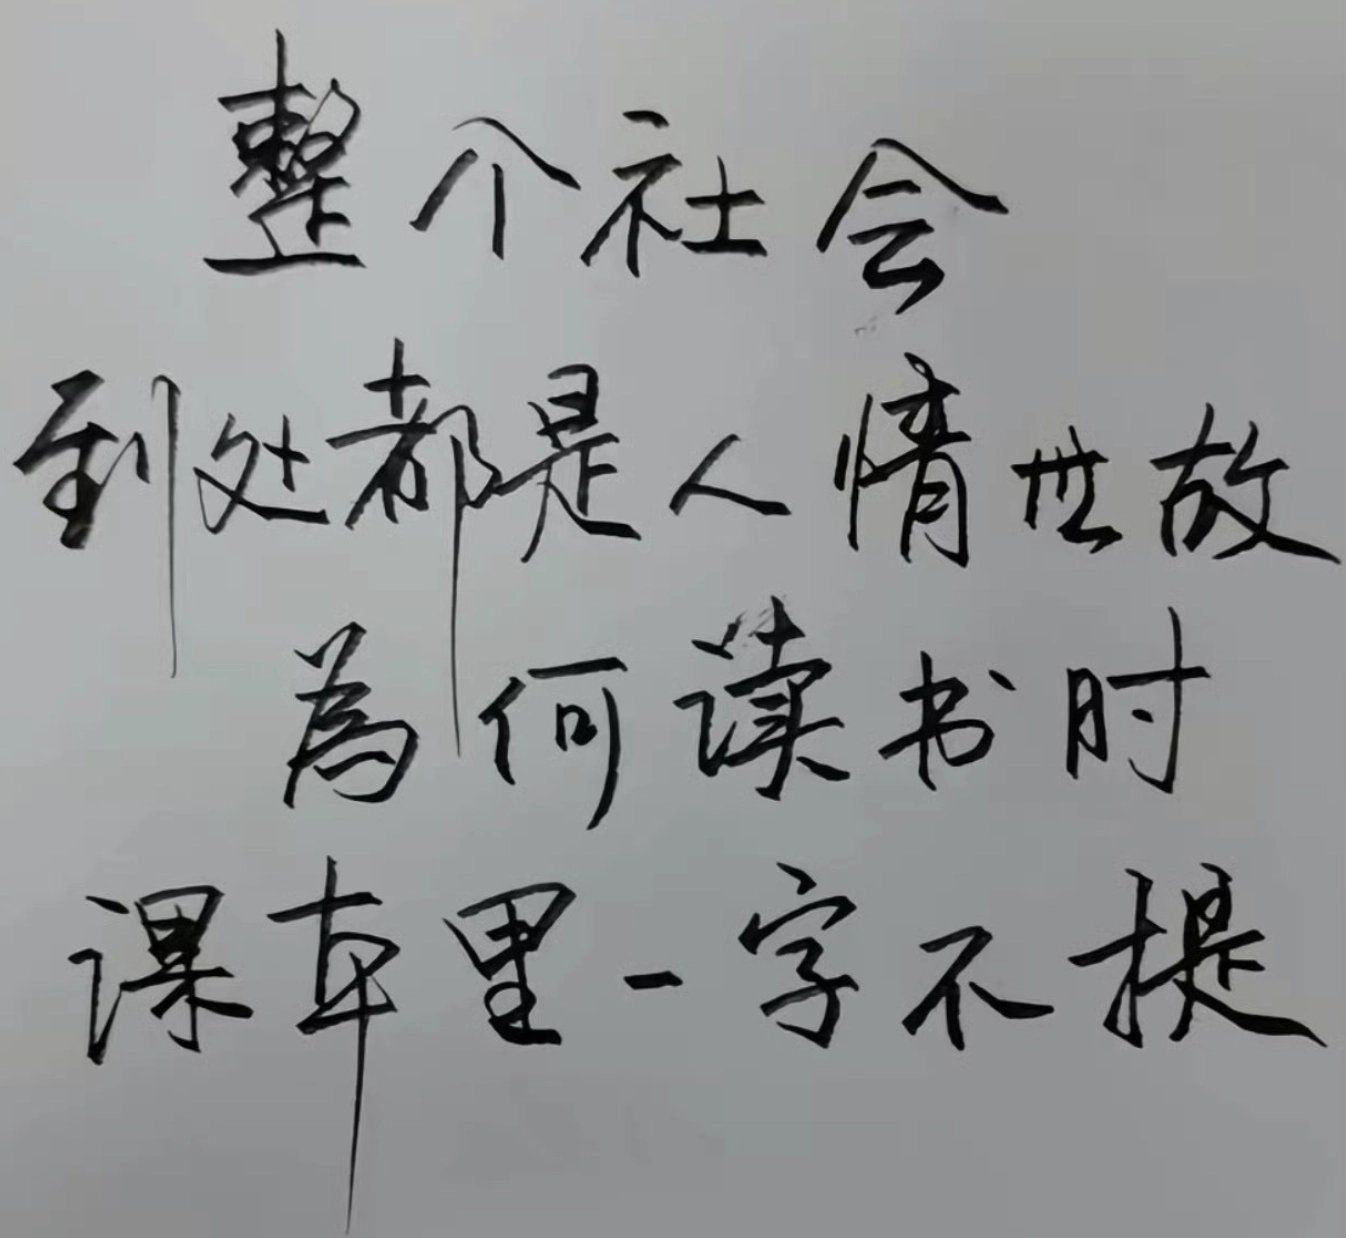 整个社会
到处都是人情世故
為何读书时
课本里一字不提